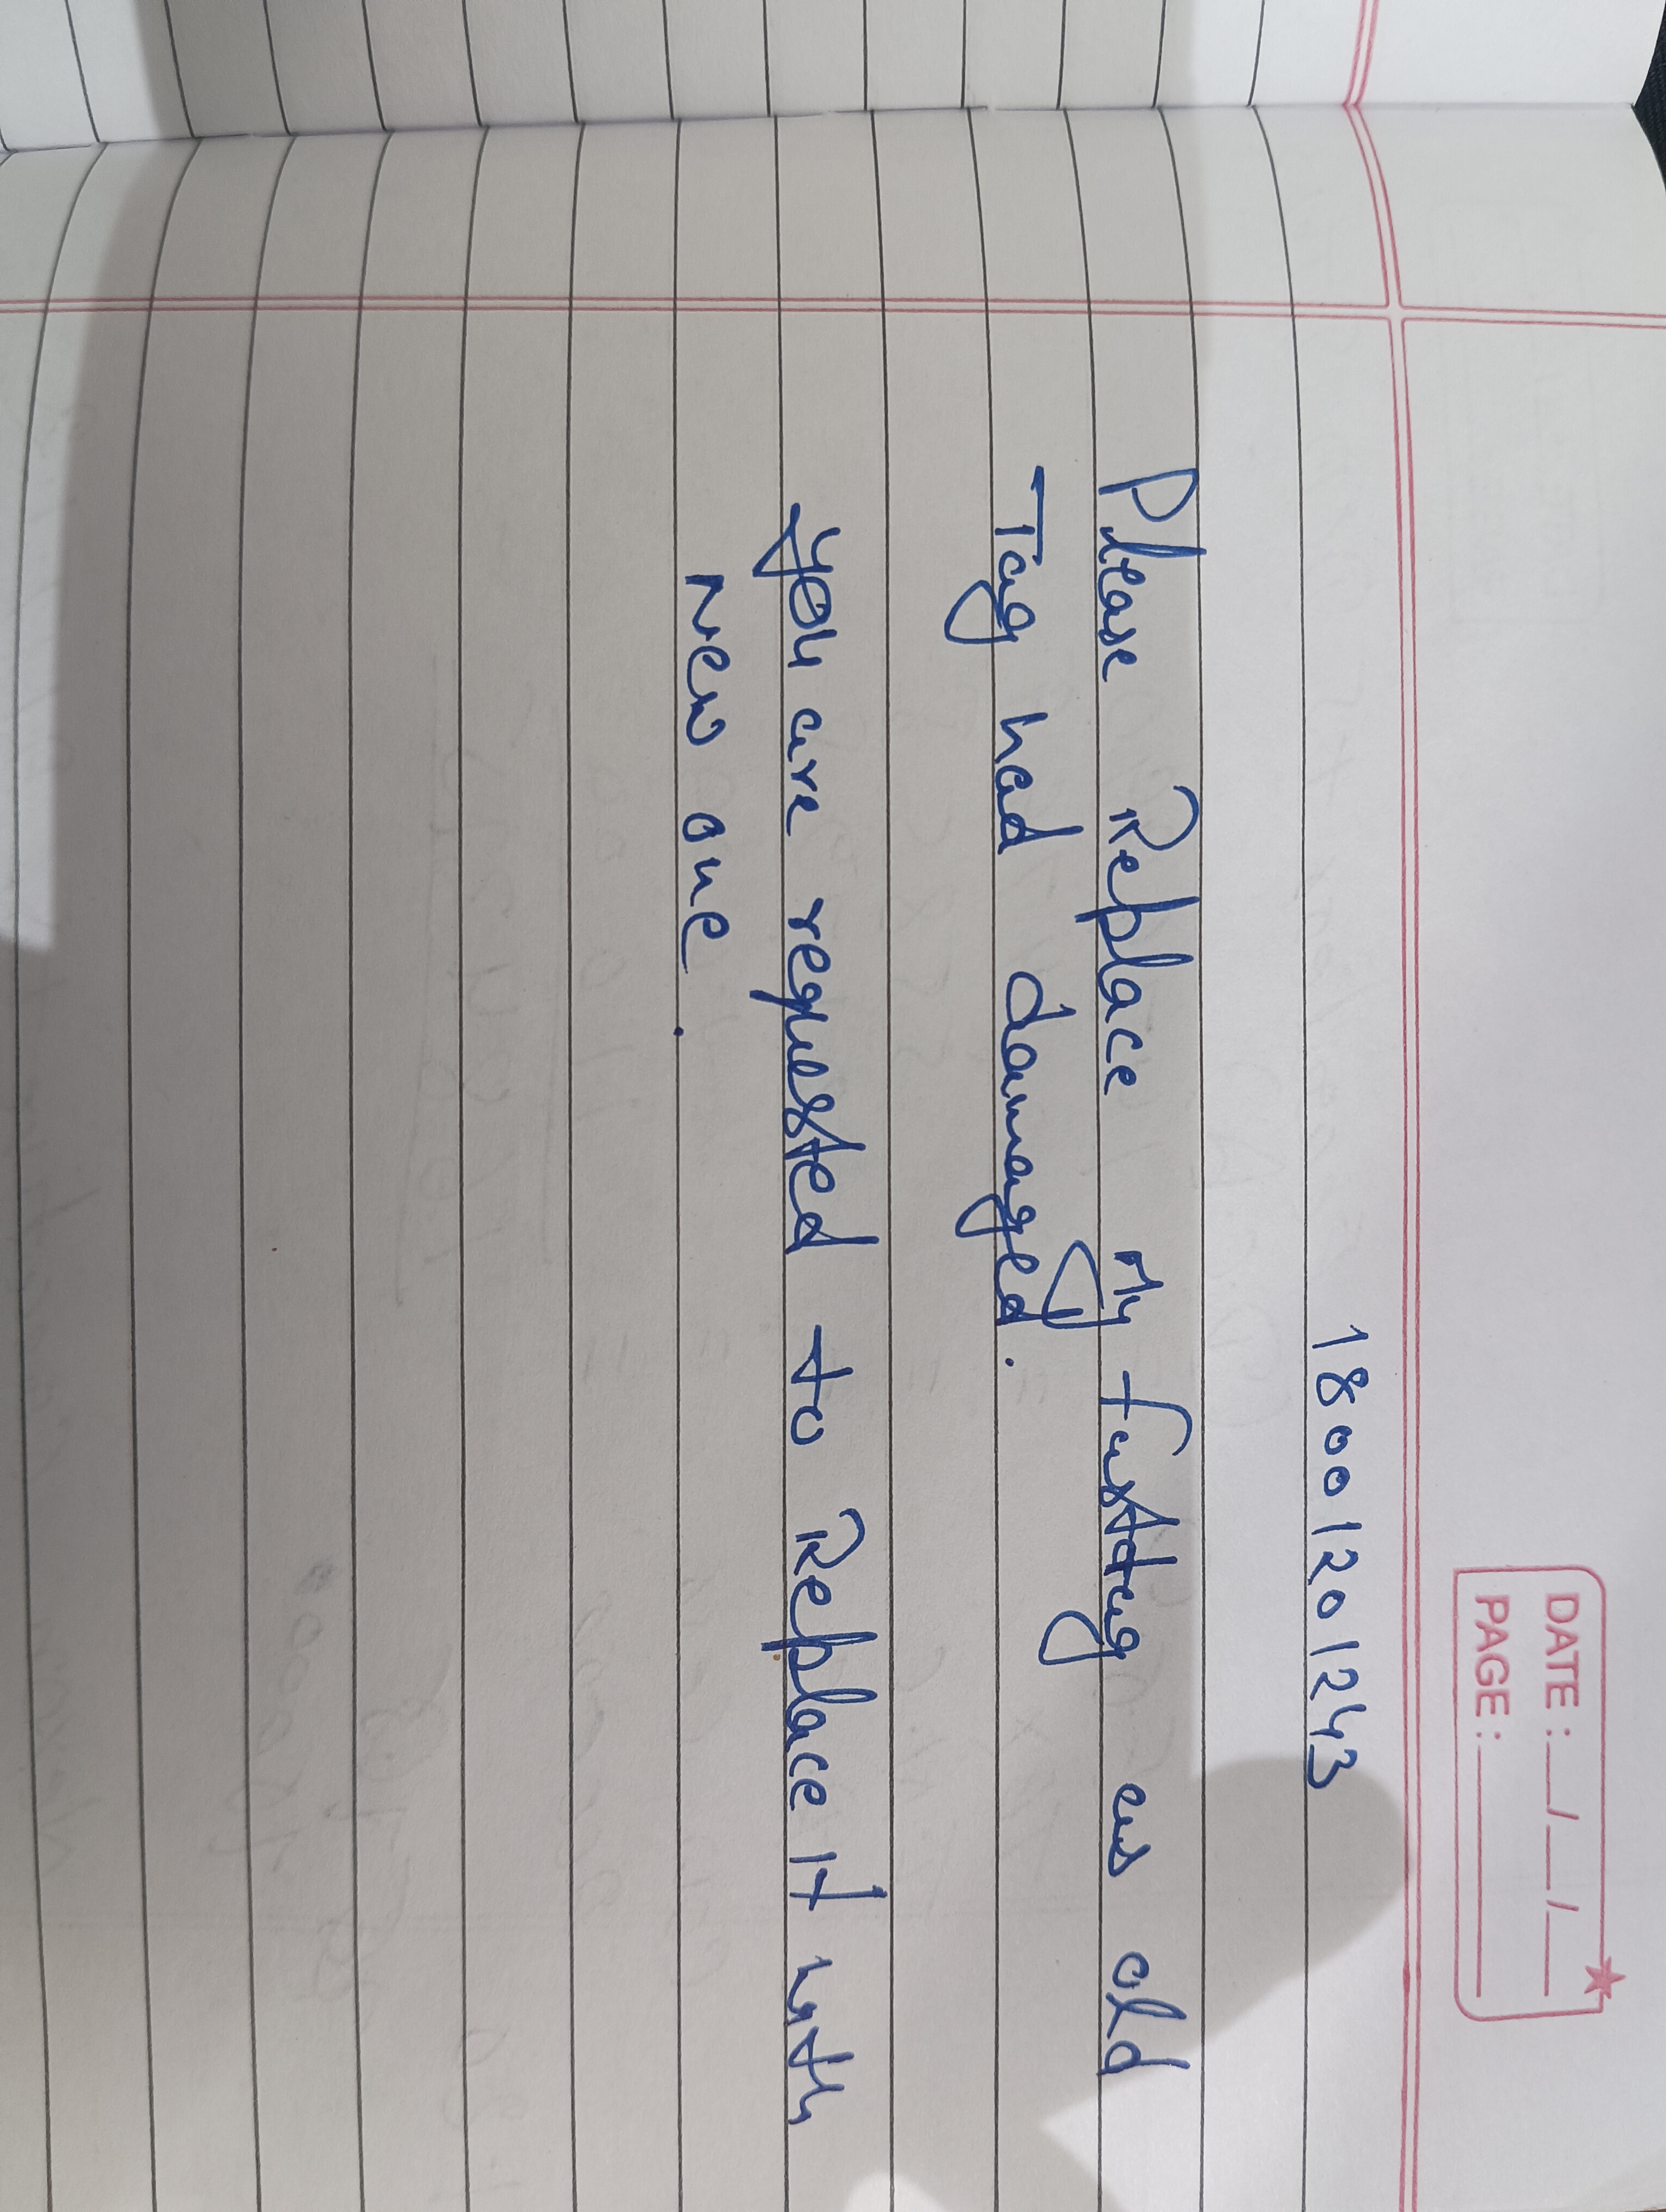 DATE: __/__/__
PAGE:
18001201243
Please Replace My fastag as old
Tag had damanged.
you are requested to Replace it with
New one.